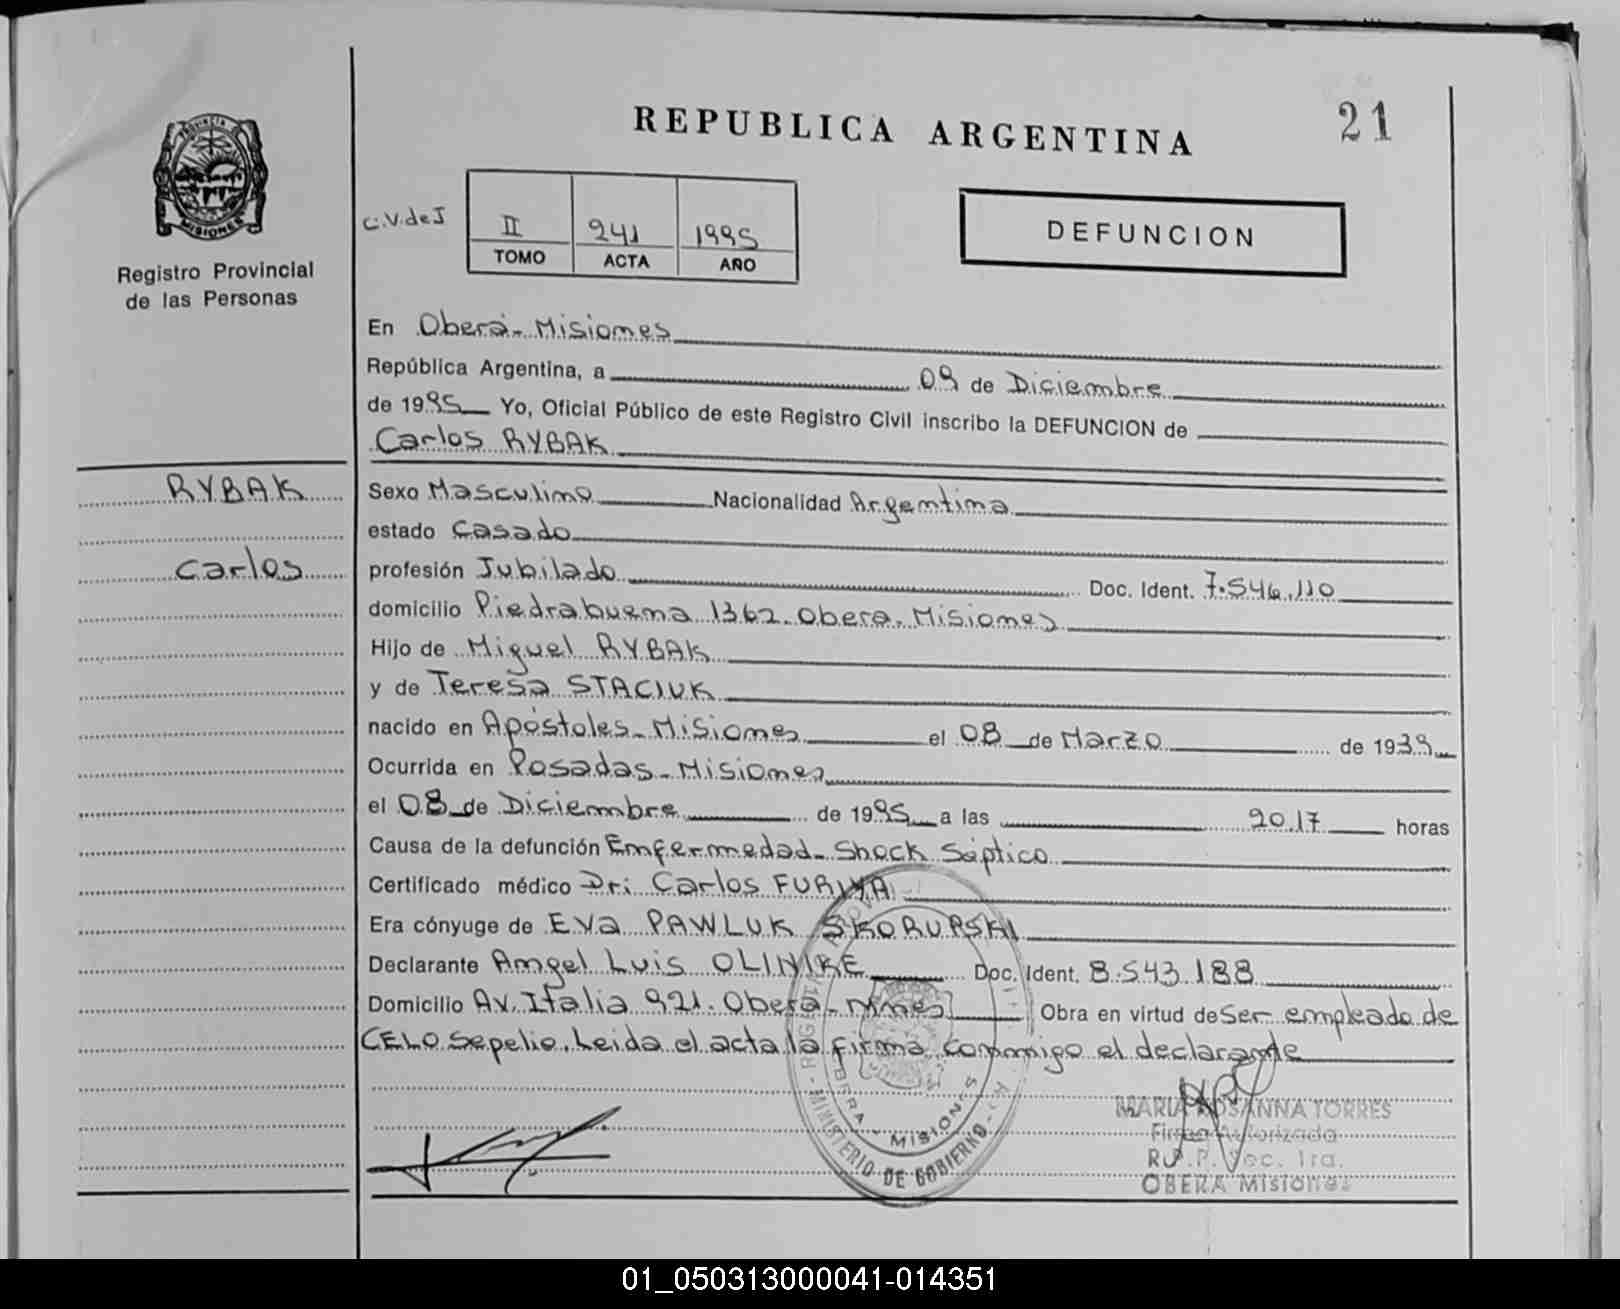 REPUBLICA ARGENTINA
21
PROVINCIA DE
MISIONES
Registro Provincial
de las Personas
C.V.deJ
II 241 1995
TOMO ACTA AÑO
DEFUNCION
En Oberá-Misiones
República Argentina, a 09 de Diciembre
de 1995 Yo, Oficial Público de este Registro Civil inscribo la DEFUNCION de
Carlos RYBAK
RYBAK
Carlos
Sexo Masculino Nacionalidad Argentina
estado Casado
profesión Jubilado Doc. Ident. 7.546.110
domicilio Piedrabuena 1362. Obera. Misiones
Hijo de Miguel RYBAK
y de Teresa STACIUK
nacido en Apóstoles-Misiones el 08 de Marzo de 1939
Ocurrida en Posadas-Misiones
el 08 de Diciembre de 1995 a las 20.17 horas
Causa de la defunción Enfermedad-Shock Séptico
Certificado médico Dr: Carlos FURIYA
Era cónyuge de Eva PAWLUK SKORUPSKI
Declarante Angel Luis OLINIKE Doc. Ident. 8.543.188
Domicilio Av. Italia 921. Oberá-Mnes Obra en virtud de Ser empleado de
CELO Sepelio. Leida el acta la firma conmigo el declarante
OBERA - MISIONES
MINISTERIO DE GOBIERNO
MARIA ROSANNA TORRES
Firma Autorizada
R.P.P. Sec. 1ra.
OBERA Misiones
01_050313000041-014351